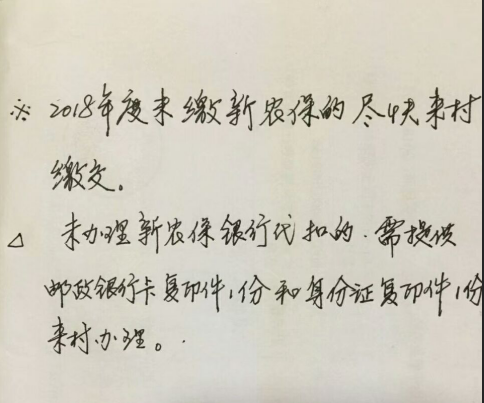 ※ 2018年度未缴新农保的尽快来村
缴交。
△ 未办理新农保银行代扣的.需提供
邮政银行卡复印件1份和身份证复印件1份
来村办理。